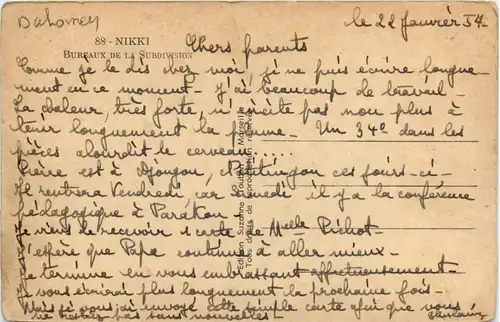 Dahomey
le 22 Janvier 54-
88 - NIKKI
BUREAUX DE LA SUBDIVISION
Chers parents
Comme je le dis chez moi, je ne puis écrire longue-
ment en ce moment - J'ai beaucoup de travail -
La chaleur, très forte, n'incite pas non plus à
tenir longuement la plume - Un 34° dans les
pièces alourdit le cerveau.....
Pierre est à Djougou, ces jours-ci-
Il rentrera Vendredi car Samedi il y a la conférence
pédagogique à Parakou -
Je viens de recevoir 1 carte de Melle Pichot -
J'espère que Papa continue à aller mieux -
Je termine en vous embrassant affectueusement -
Je vous écrirai plus longuement la prochaine fois -
Mais je vous ai envoyé cette simple carte afin que vous
ne restiez pas sans nouvelles -
Edition Suzanne Marseille
Tous droits de reproduction réservés